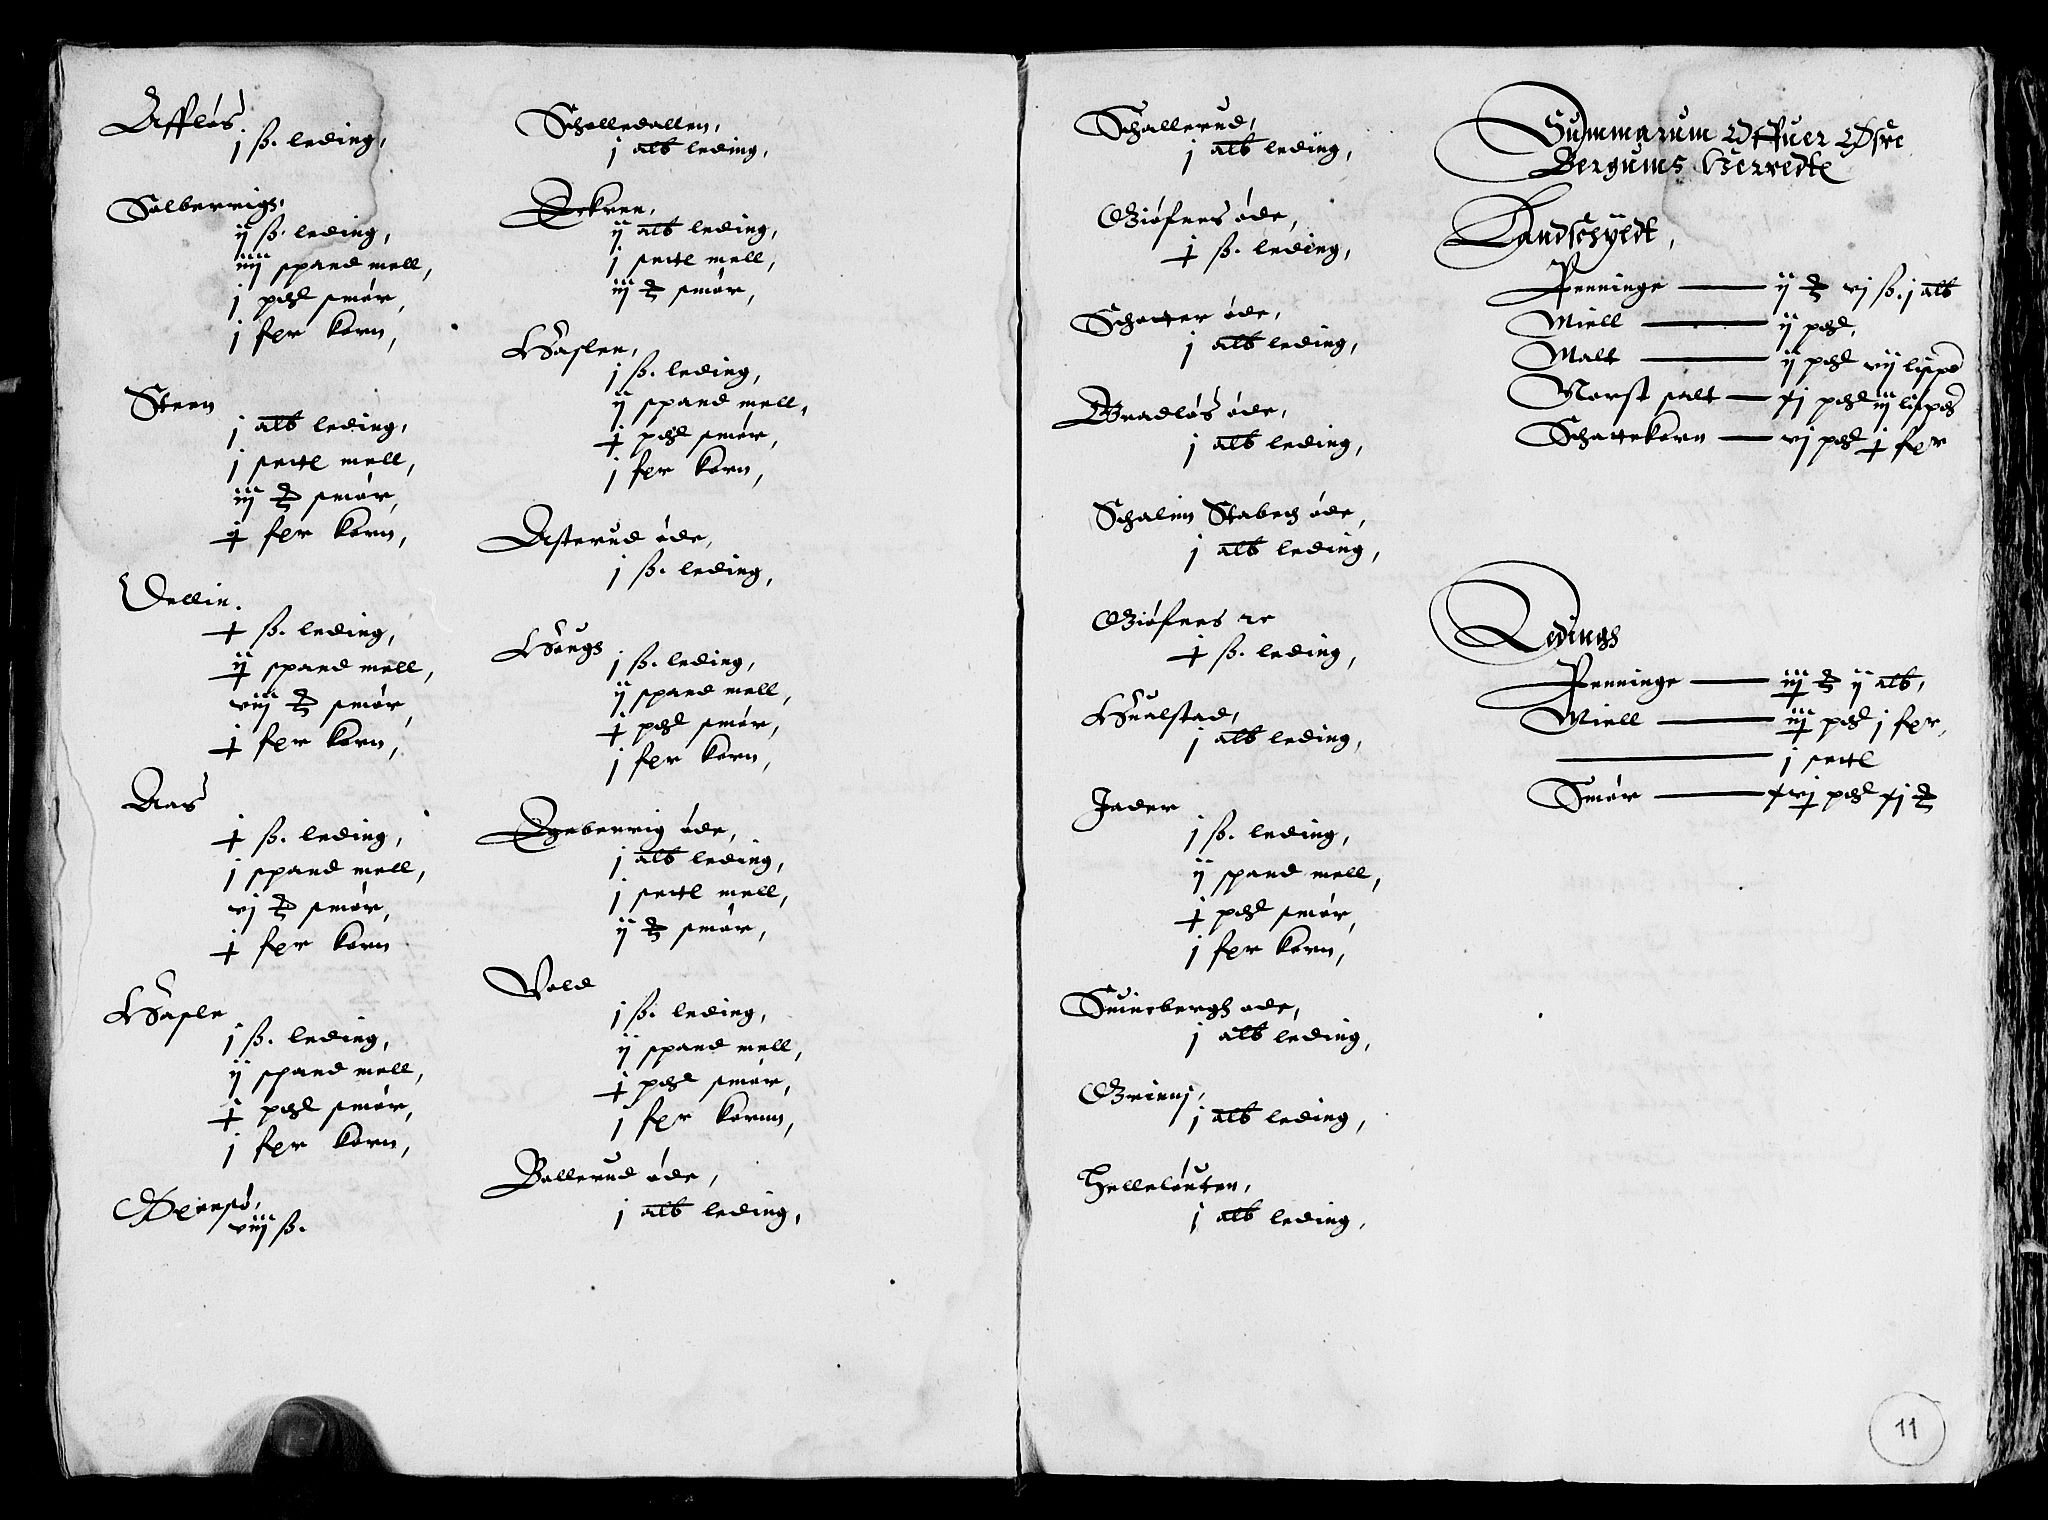 Affløs
j ß. leding,
Solberrigs,
ij ß. leding,
iiij spand mell,
j pd smør,
j fer korn,
Steen
j alb leding,
j setl mell,
iij smør,
fer korn,
Vellin.
ß. leding,
spand mell,
viij smør,
fer korn,
Aas
ß. leding,
j spand mell,
vj smør,
fer korn
Hasle
j ß. leding,
ij spand mell,
pd smør,
j fer korn,
viij ß.
Scholledallen,
j alb leding,
Eckren,
ij alb leding,
j setl mell,
iij smør,
Haslen,
j ß. leding,
ij spand mell,
pd smør,
j fer korn,
Asterud øde,
j ß. leding,
Hougs
j ß. leding,
ij spand mell,
pd smør,
j fer korn,
Egeberrig øde,
j alb leding,
j setl mell,
ij smør,
Vold
j ß. leding,
ij spand mell,
pd smør,
j fer kornn,
Bollerud øde,
j alb leding,
Schallerud,
j alb leding,
Giøfnes øde,
ß. leding,
Schotter øde,
j alb leding,
Bradløs øde,
j alb leding,
Schalm Stabech øde,
j alb leding,
Giøfnes
ß. leding,
Hualstad,
j alb leding,
Jader
j ß. leding,
ij spand mell,
pd smør,
j fer korn,
Suinebergh øde,
j alb leding,
Grinnj,
j alb leding,
Helleløuten,
j alb leding,
Summarum Offuer Øsre
Bergums Herredt
Landschyldt,
Penninge — ij vj ß. j alb
Miell — ij pd,
Malt — ij pd vij lispd
Norst salt — pd iij lispd
Schattekorn — vj pd fer
Ledingh
Penninge — iij ij alb,
Miell — iij pd j fer,
— j setl
Smør — pd
11